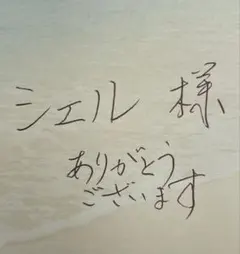 シェル 様
ありがとう
ございます